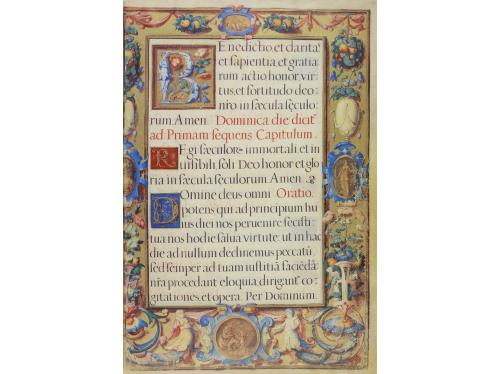 Benedictio, et clarita⁹
et sapientia, et gratia
rum actio honor, vir
tus, et fortitudo deo
nr̄o in sæcula sęculo
rum. Amen. Dominica die dicit̃
ad Primam sequens Capitulum.
REgi sæculor⁊ immortali et in
uisibili soli Deo honor et glo
ria in sæcula sæculorum. Amen.
DOmine deus omni Oratio.
potens qui ad principium hu
ius diei nos peruenire fecisti
tua nos hodie salua virtute: ut in hac
die ad nullum declinemus peccatū
sed semper ad tuam iustitiā faciēdā
nr̄a procedant eloquia, dirigant̃ co
gitationes, et opera. Per Dominum.